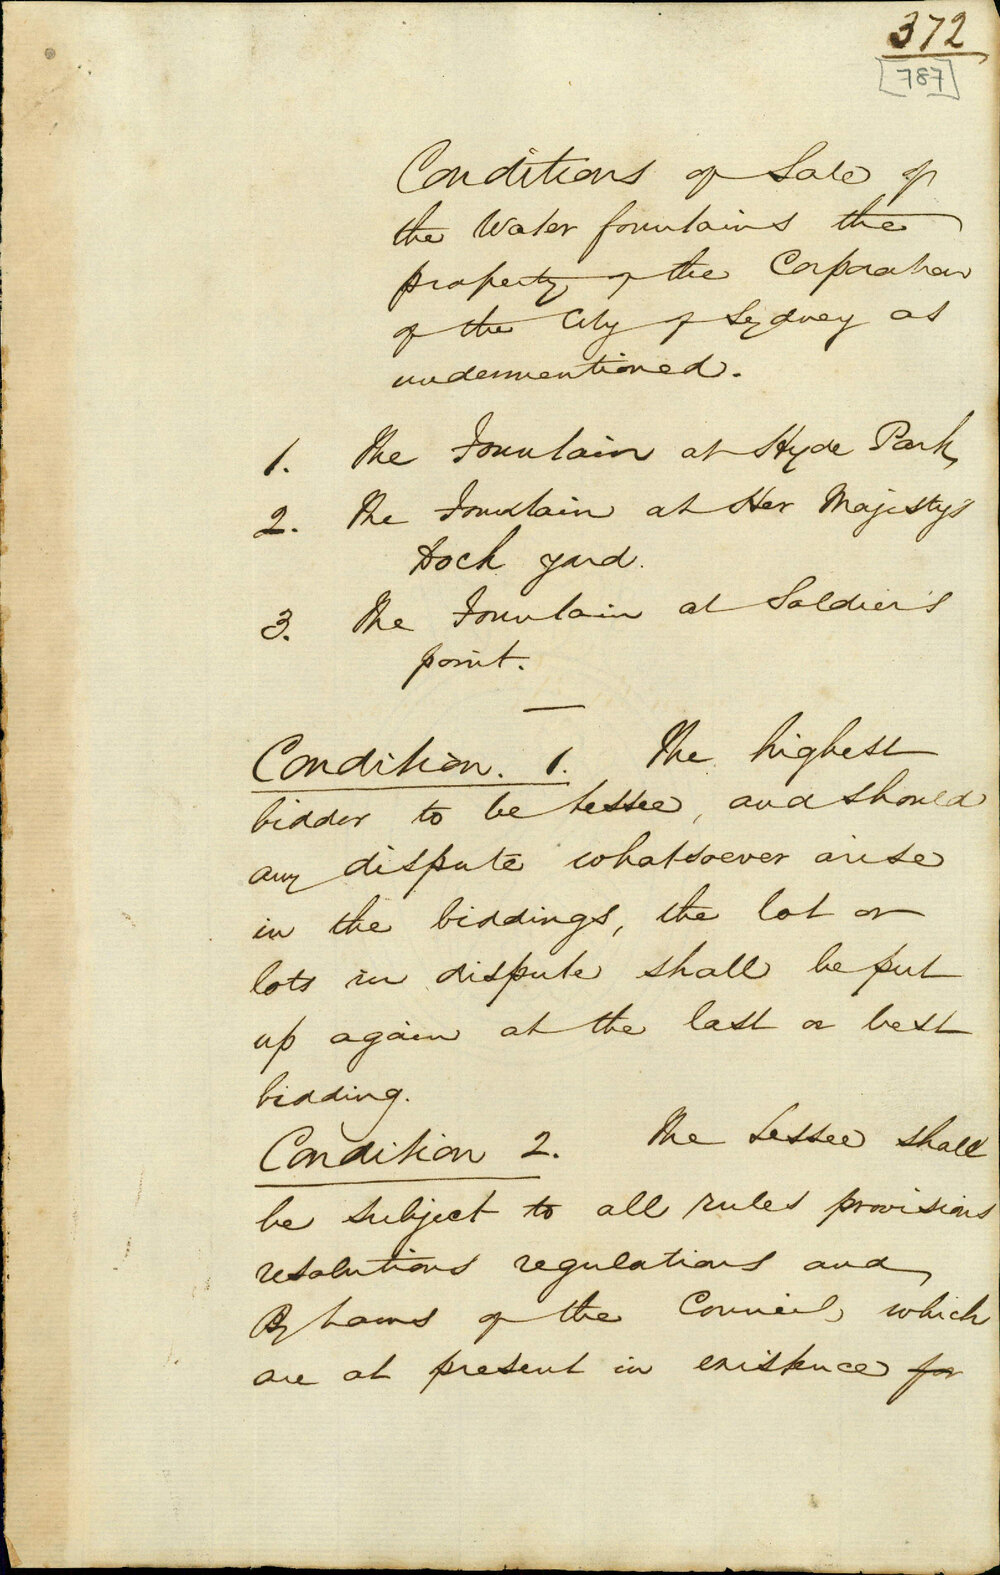 372
[787]
Conditions of Sale of
the Water fountains the
property of the Corporation
of the City of Sydney as
undermentioned.
1. The Fountain at Hyde Park,
2. The Fountain at Her Majesty's
Dock yard.
3. The Fountain at Soldier's
point.
Condition. 1. The highest
bidder to be Lessee, and should
any dispute whatsoever arise
in the biddings, the lot or
lots in dispute shall be put
up again at the last or best
bidding.
Condition 2. The Lessee shall
be subject to all rules provisions
resolutions regulations and
By Laws of the Council, which
are at present in existence for